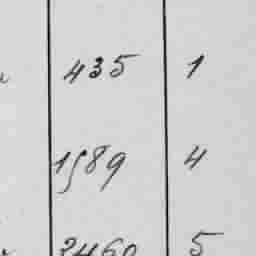 435 1
1589 4
2460 5